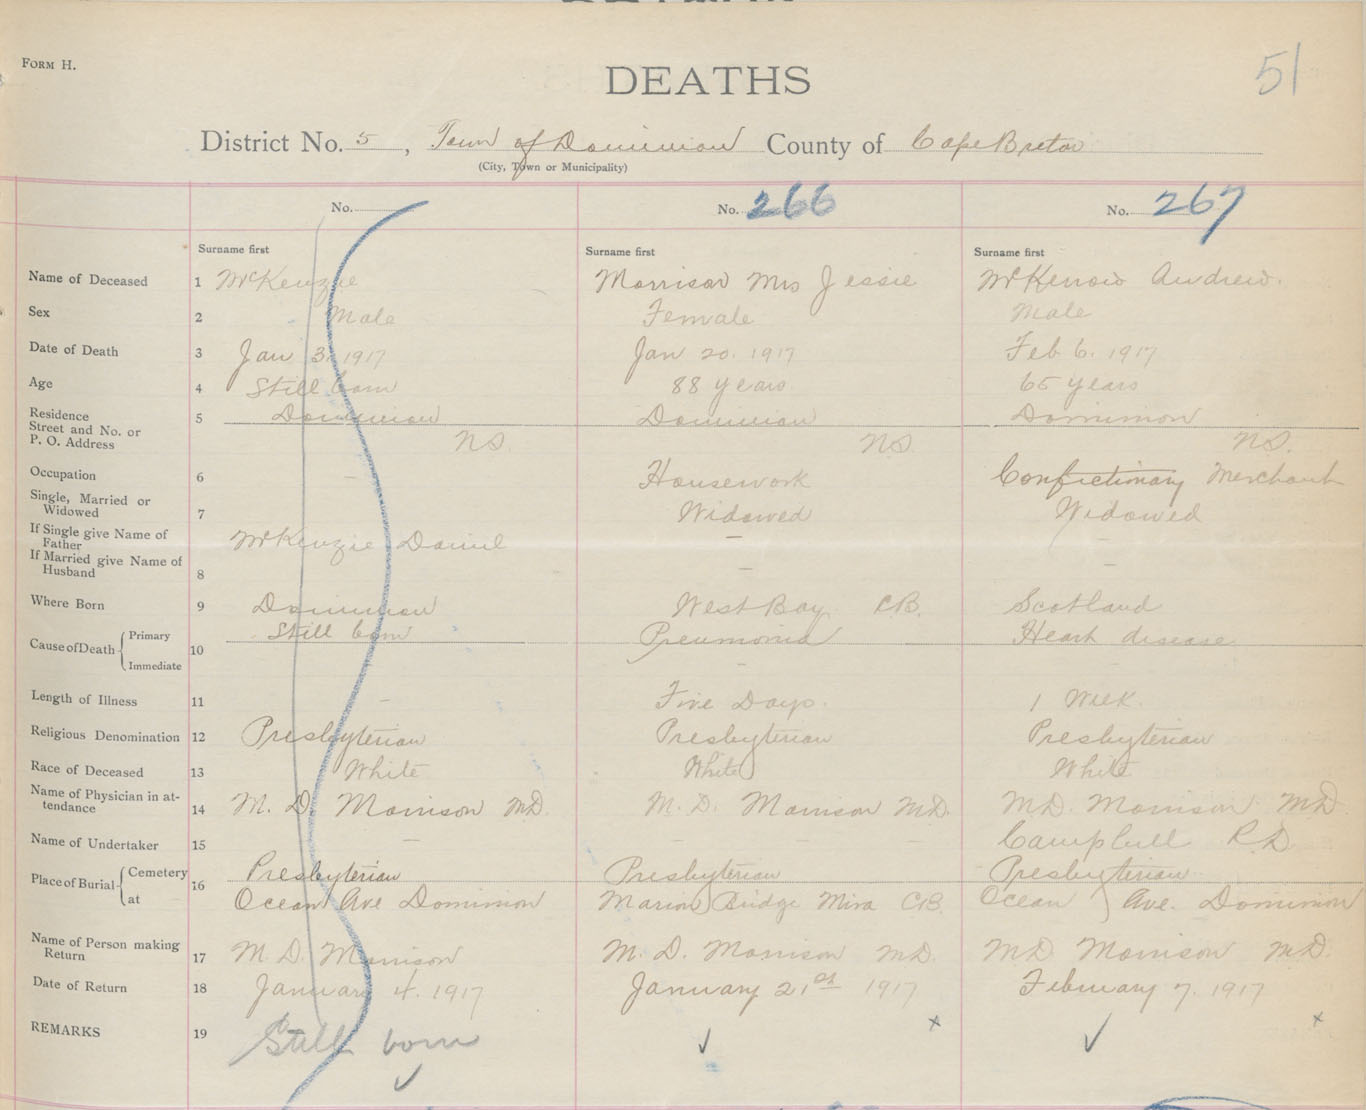 FORM H.
51
DEATHS
District No. 5, Town of Dominion County of Cape Breton
(City, Town or Municipality)
No.
No. 266
No. 267
Surname first
Surname first
Surname first
Name of Deceased 1 McKenzie Morrison Mrs Jessie Andrew.
Sex 2 Male Female Male
Date of Death 3 Jan 3. 1917 Jan 20. 1917 Feb 6. 1917
Age 4 Still born 88 years 65 years
Residence
Street and No. or
P. O. Address 5 Dominion Dominion Dominion
NS. NS. NS.
Occupation 6 – Housework Confictionary Merchant
Single, Married or
Widowed 7 Widowed Widowed
If Single give Name of
Father McKenzie Daniel – –
If Married give Name of
Husband 8 – –
Where Born 9 Dominion West Bay C.B. Scotland
Cause of Death 10 Primary Still born Pneumonia Heart disease
Immediate –
Length of Illness 11 – Five Days. 1 Week.
Religious Denomination 12 Presbyterian Presbyterian Presbyterian
Race of Deceased 13 White White White
Name of Physician in at-
tendance 14 M. D. Morrison MD. M. D. Morrison MD. M.D. Morrison MD.
Name of Undertaker 15 – – – – Campbell R.D.
Place of Burial 16 Cemetery Presbyterian Presbyterian Presbyterian
at Ocean Ave Dominion Marion Bridge Mira C.B. Ocean Ave. Dominion
Name of Person making
Return 17 M. D. Morrison M. D. Morrison MD. M.D. Morrison MD.
Date of Return 18 January 4. 1917 January 21st 1917 February 7. 1917
REMARKS 19 Still born